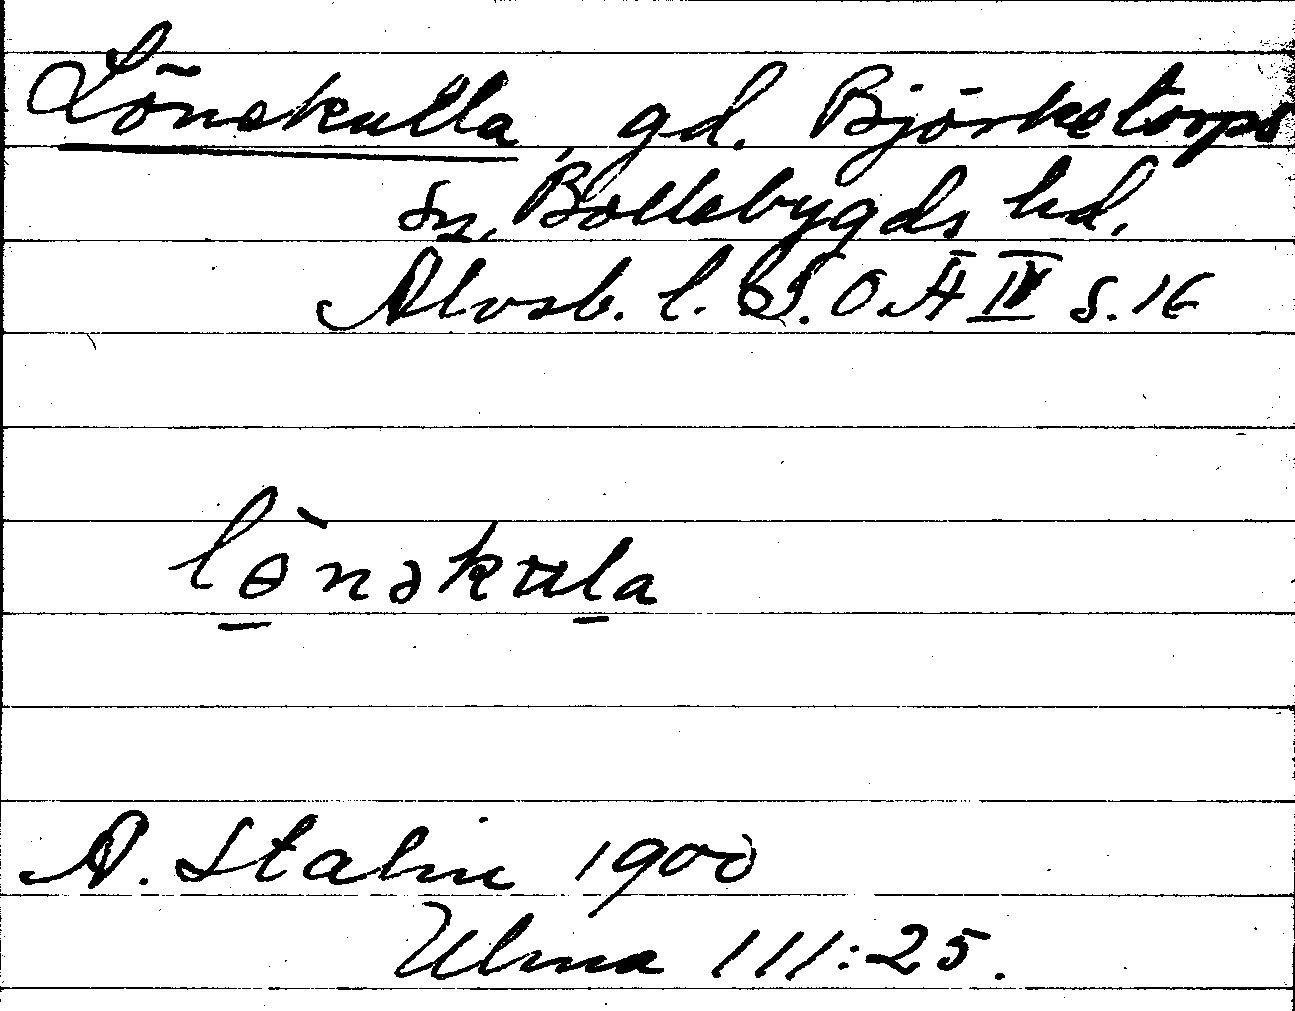 Lönekulla, gd. Björketorps
sn, Bollebygds hd.
Älvsb. l. S.O.Ä IV s. 16
lɵ̀nəkula
A. Stalin 1900
Ulma 111:25.